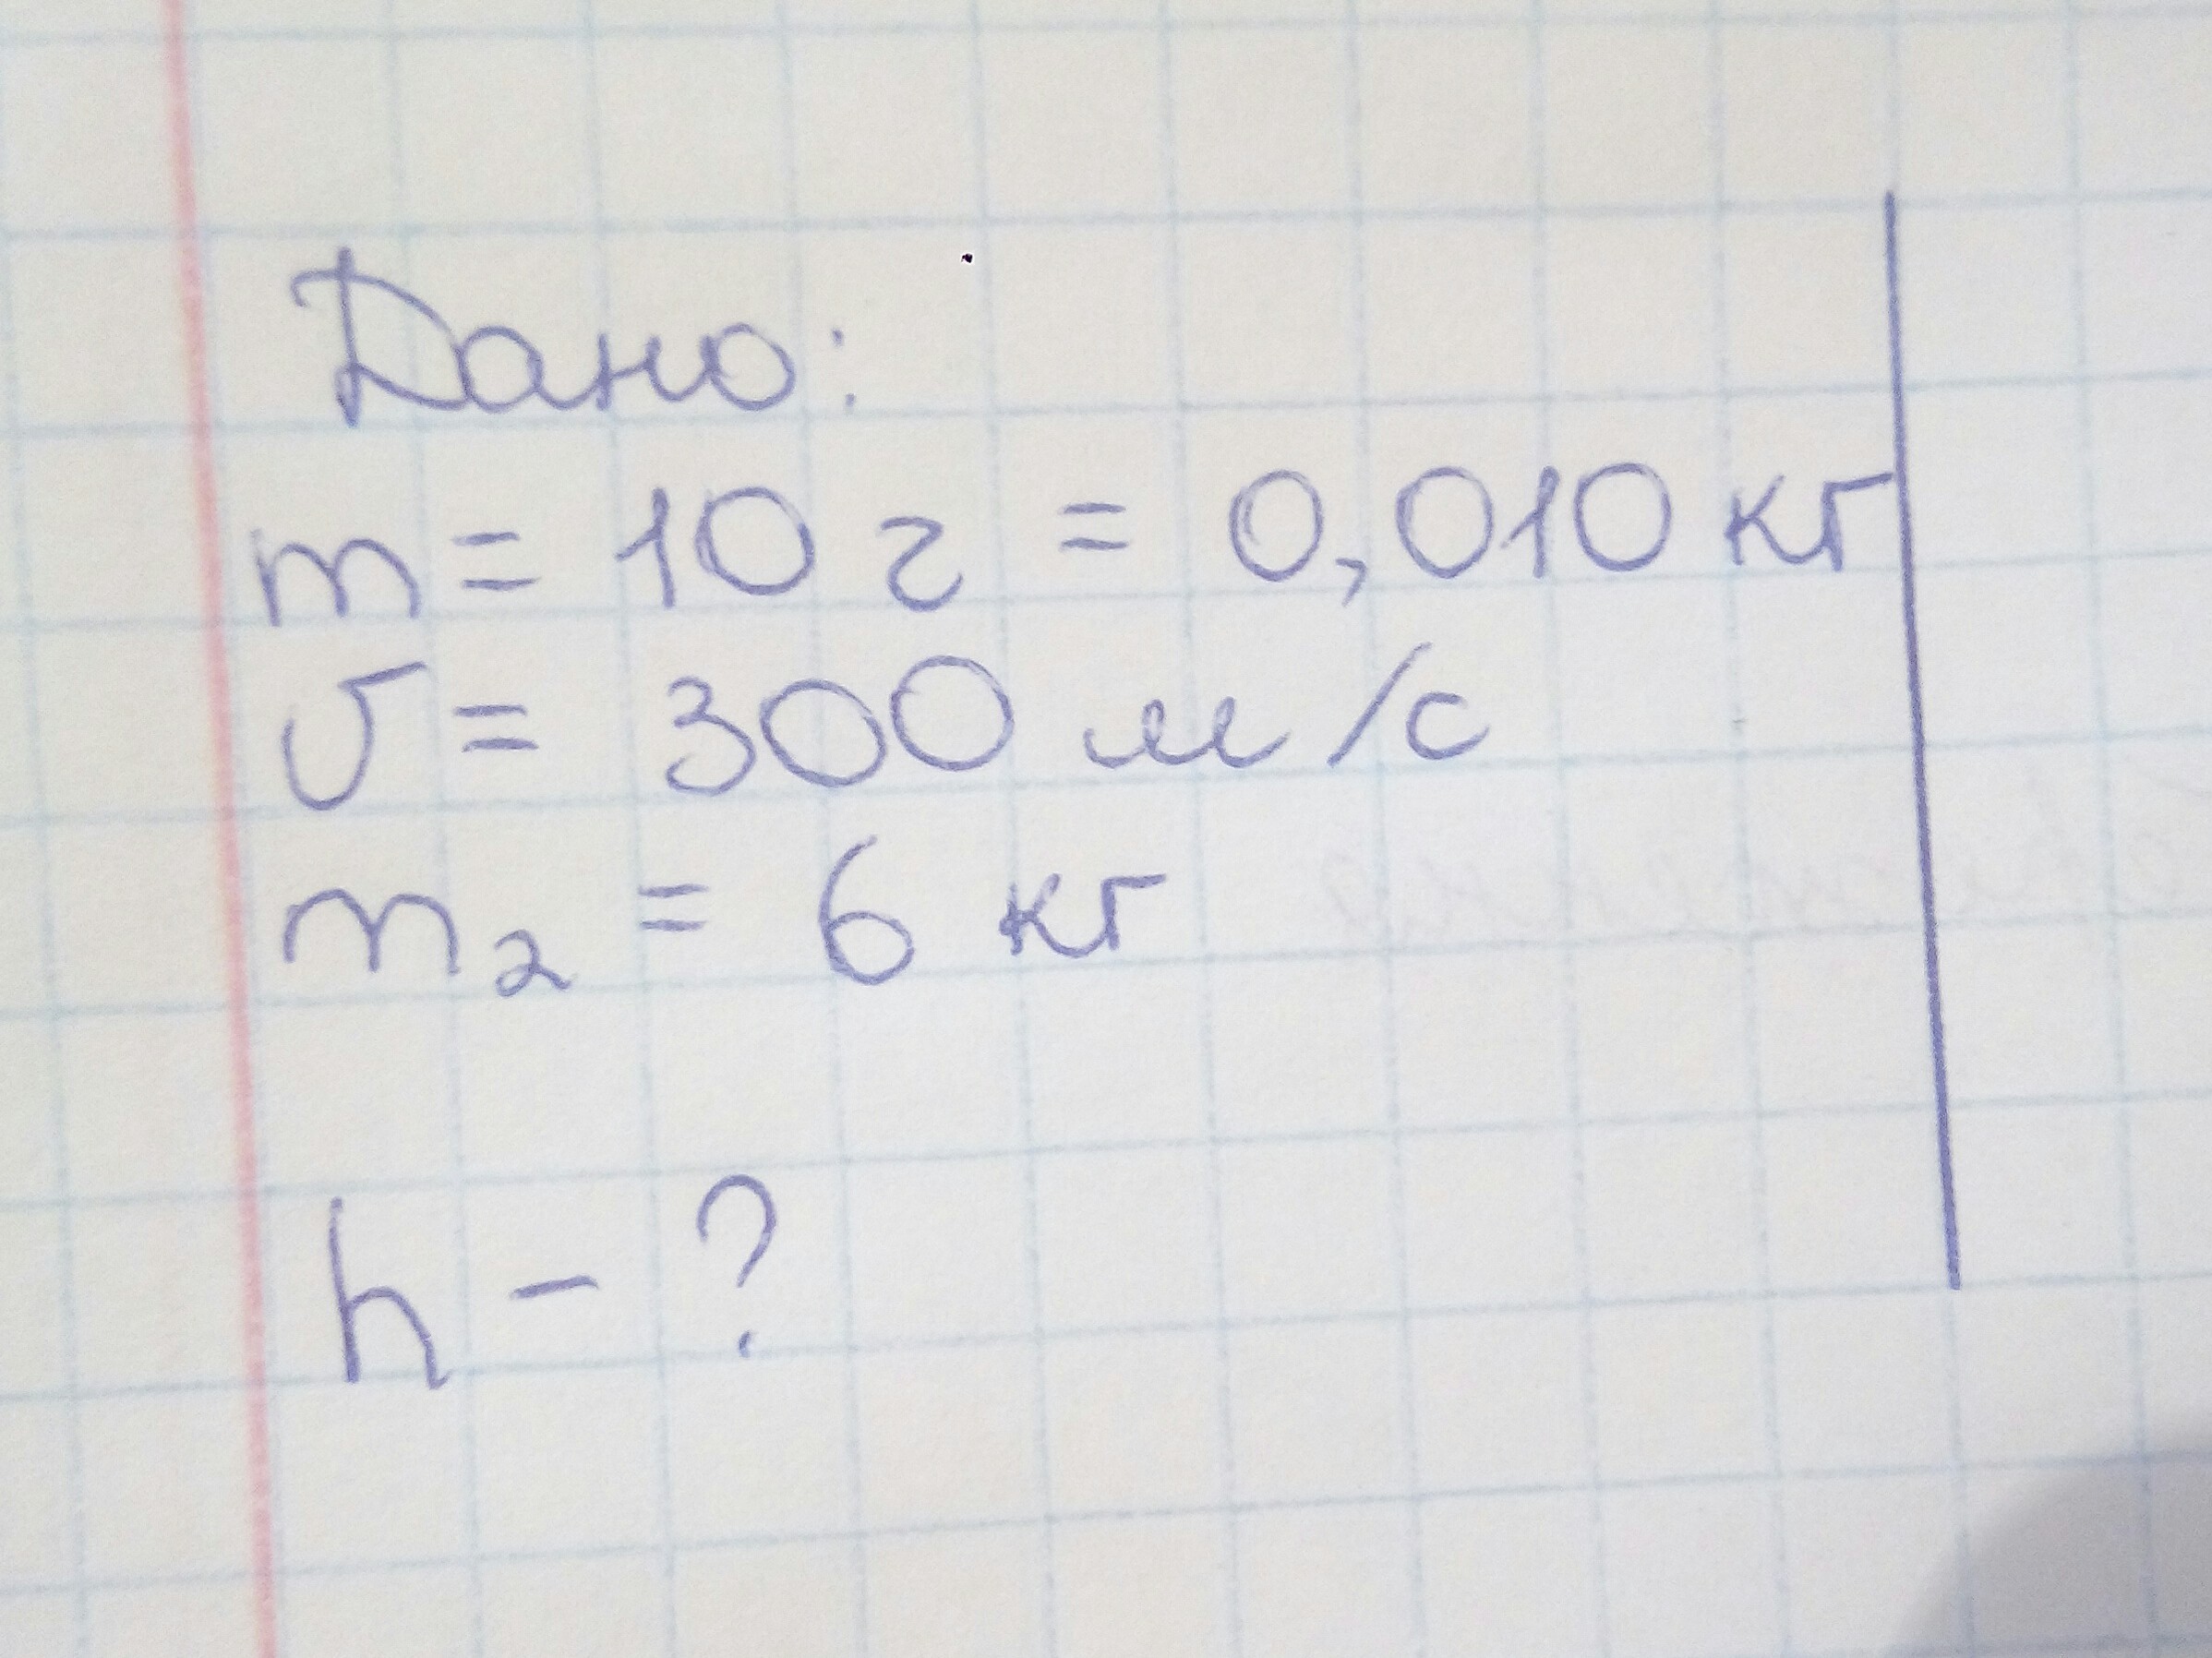 Дано:
m = 10 г = 0,010 кг
υ = 300 м/с
m₂ = 6 кг
h - ?